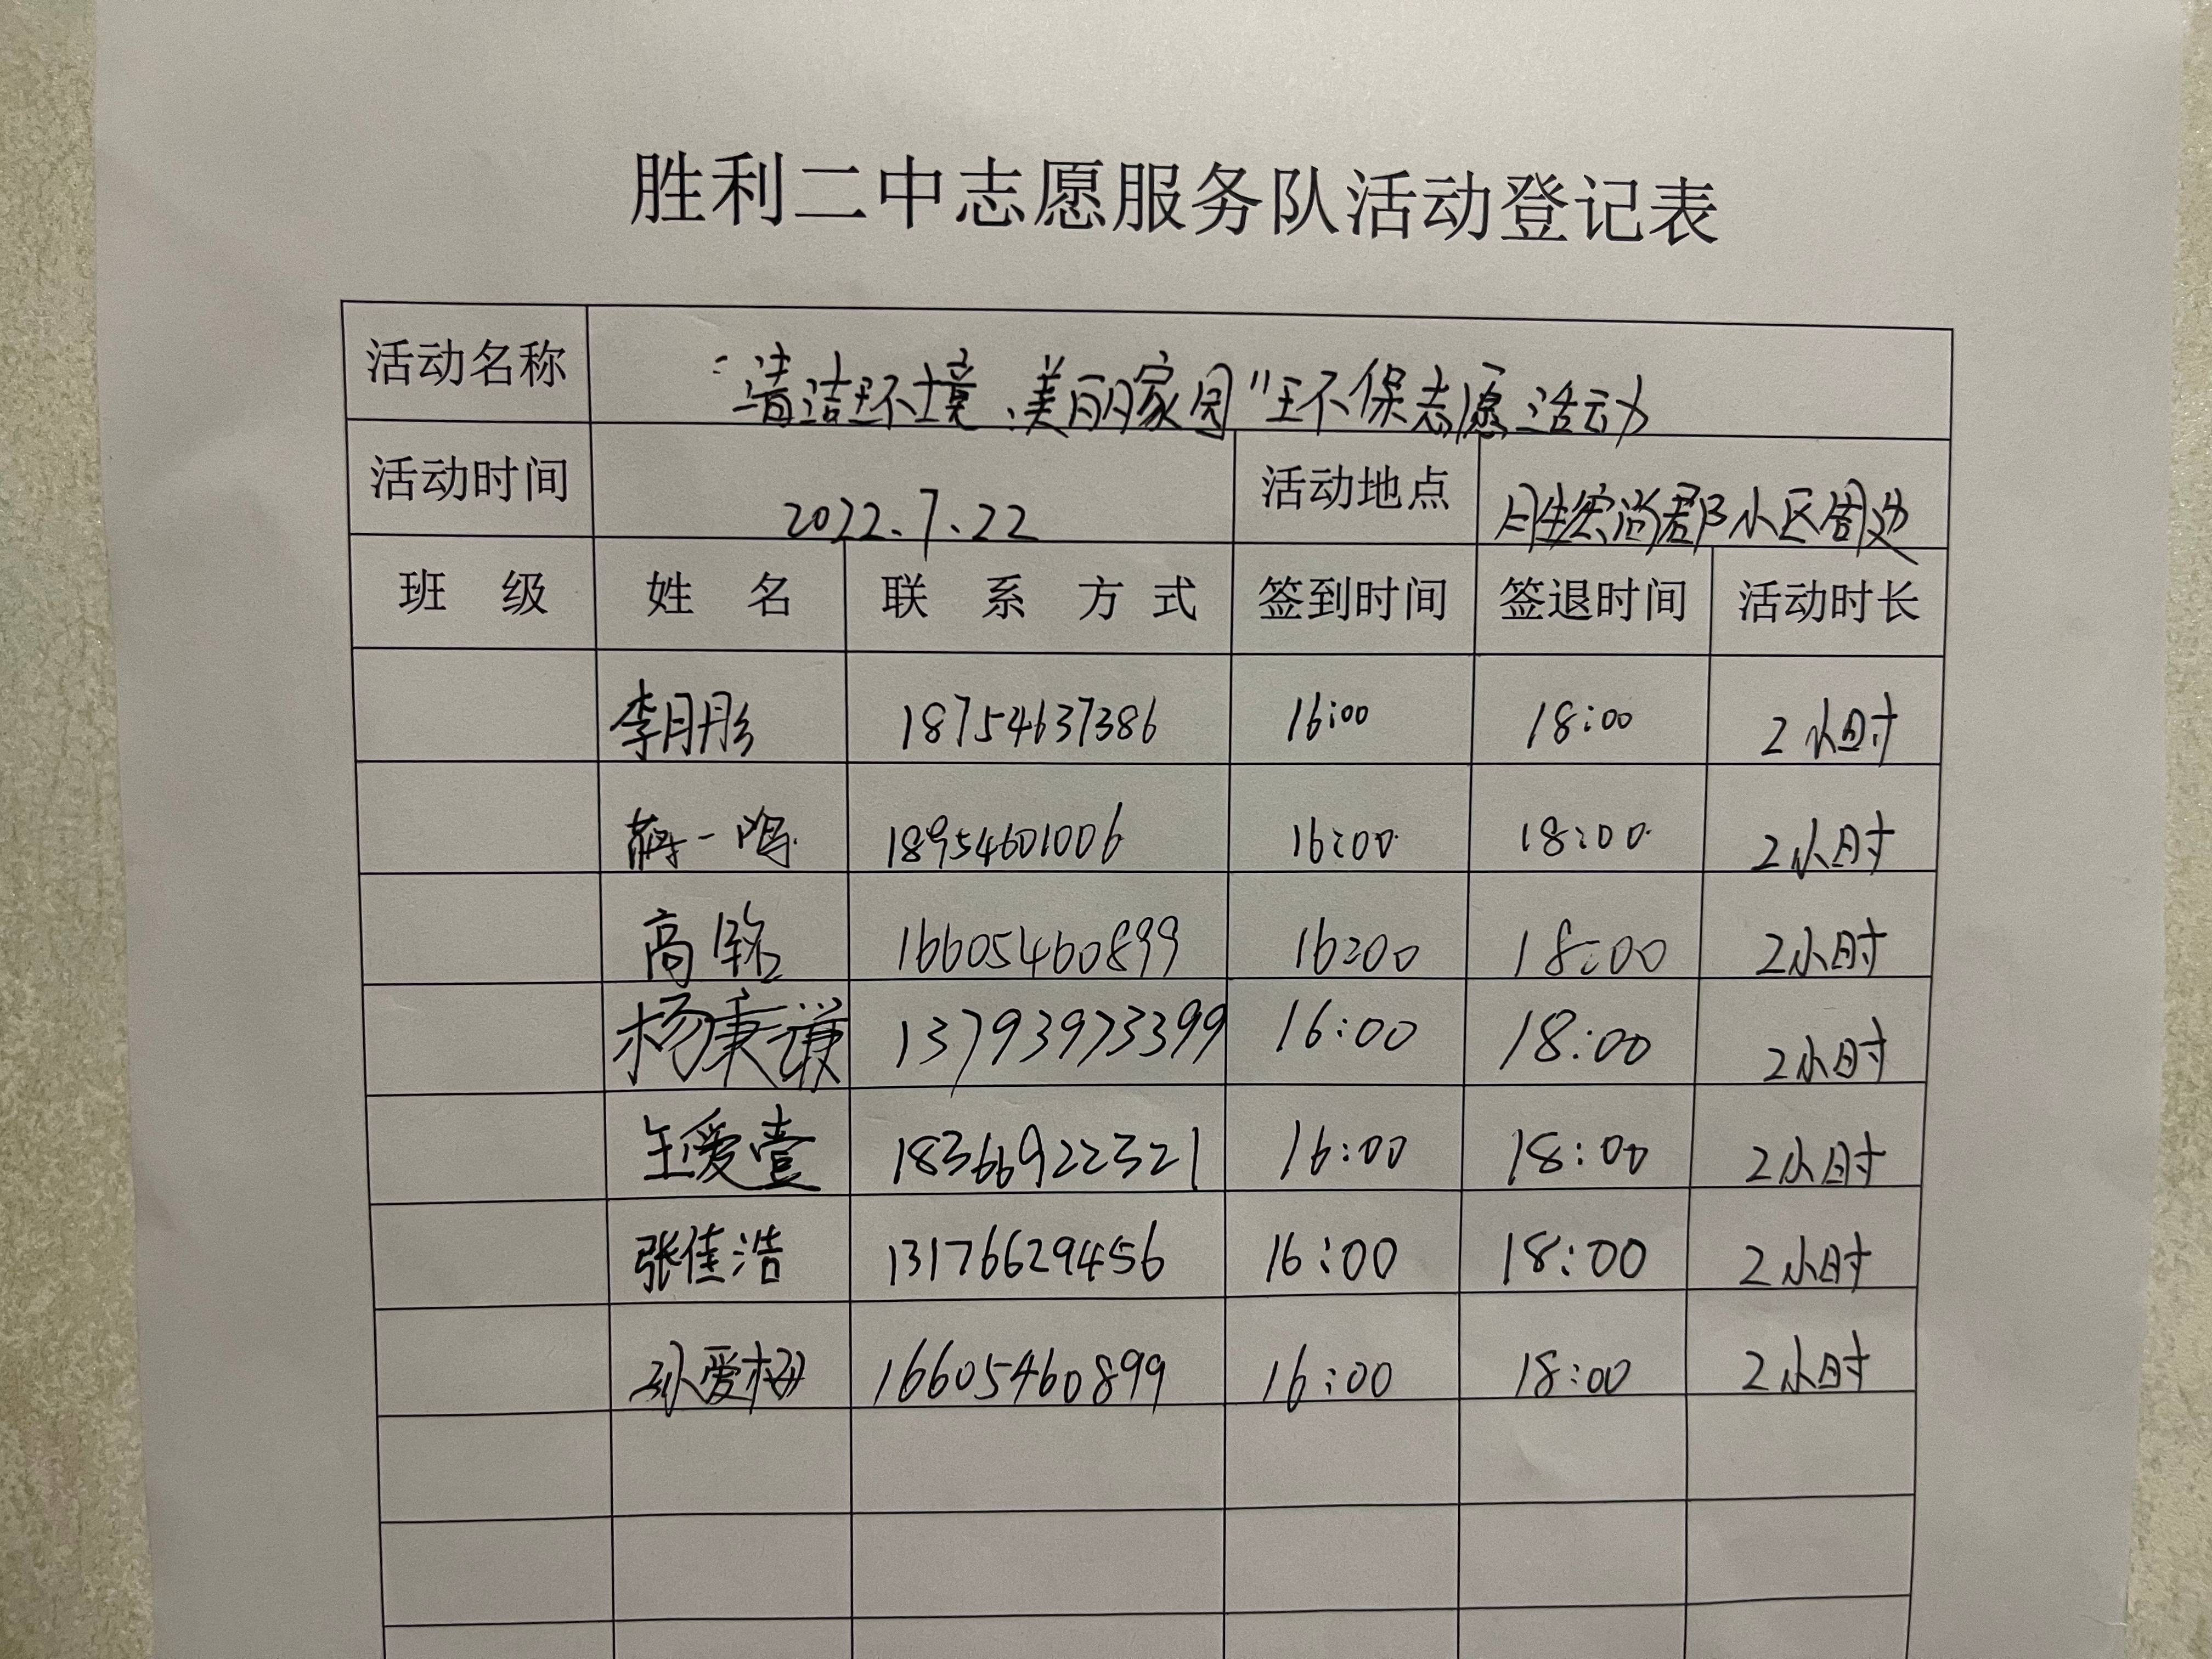 胜利二中志愿服务队活动登记表
活动名称 "清洁环境、美丽家园"环保志愿活动
活动时间 2022.7.22 活动地点 胜宏尚郡小区周边
班 级 姓 名 联 系 方 式 签到时间 签退时间 活动时长
李月彤 18754637386 16:00 18:00 2小时
蒋一鸣 18954601006 16:00 18:00 2小时
高铭 16605460899 16:00 18:00 2小时
杨秉谦 13793973399 16:00 18:00 2小时
王爱壹 18366922321 16:00 18:00 2小时
张佳浩 13176629456 16:00 18:00 2小时
孙爱梅 16605460899 16:00 18:00 2小时